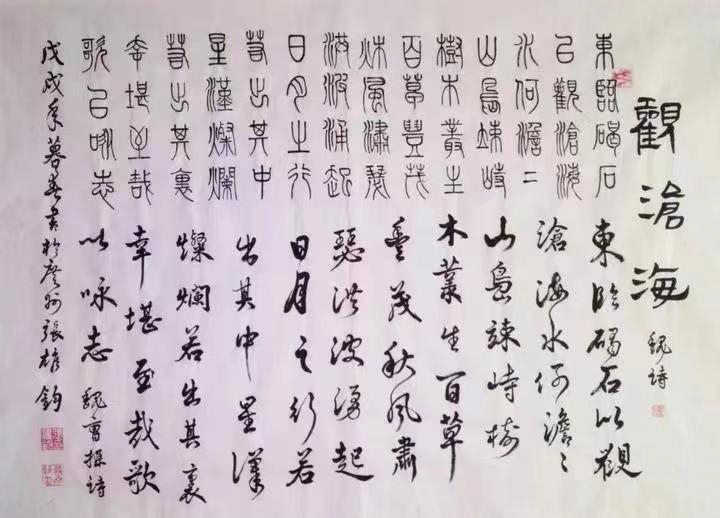 觀滄海
魏詩
東臨碣石
㠯觀滄海
水何澹二
山島竦峙
樹木叢生
百草豐茂
秋風瀟瑟
洪波涌起
日月之行
若出其中
星漢燦爛
若出其裏
幸堪至哉
歌㠯咏志
東臨碣石以觀
滄海水何澹〻
山島竦峙樹
木叢生百草
豐茂秋風肅
瑟洪波湧起
日月之行若
出其中星漢
燦爛若出其裏
幸堪至哉歌
以咏志
魏曹操詩
戊戌年暮春書於廣州張雄鈞